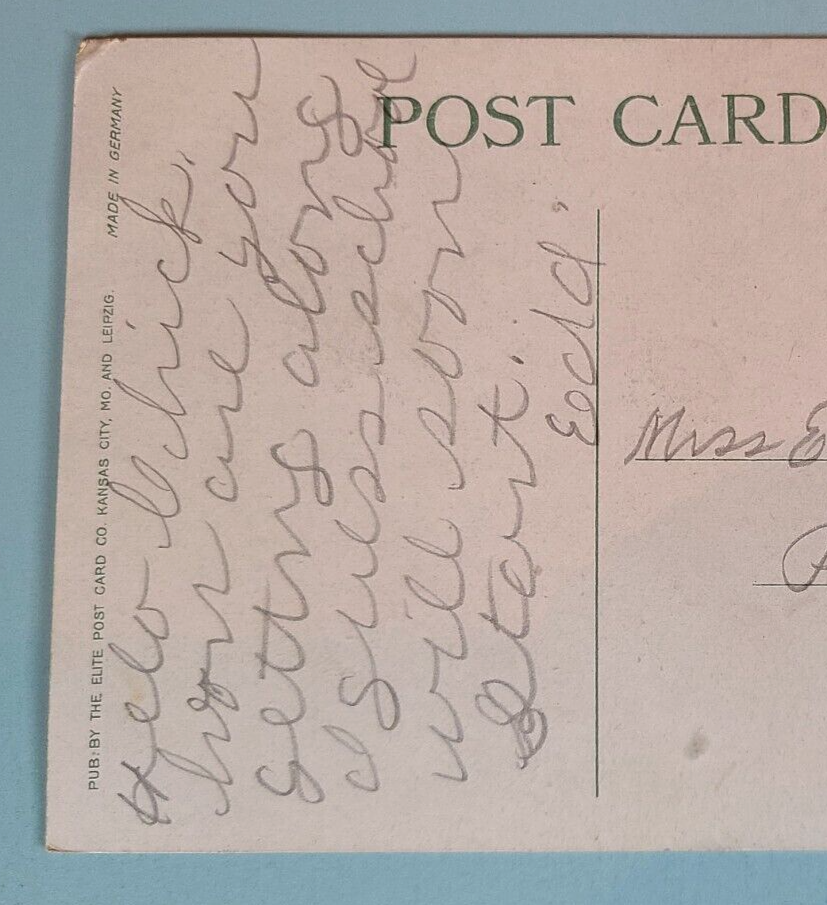 POST CARD
PUB: BY THE ELITE POST CARD CO. KANSAS CITY, MO. AND LEIPZIG. MADE IN GERMANY
Helo Chick.
how are you
getting along
I guess school
will soon
start.
Edd.
Miss E